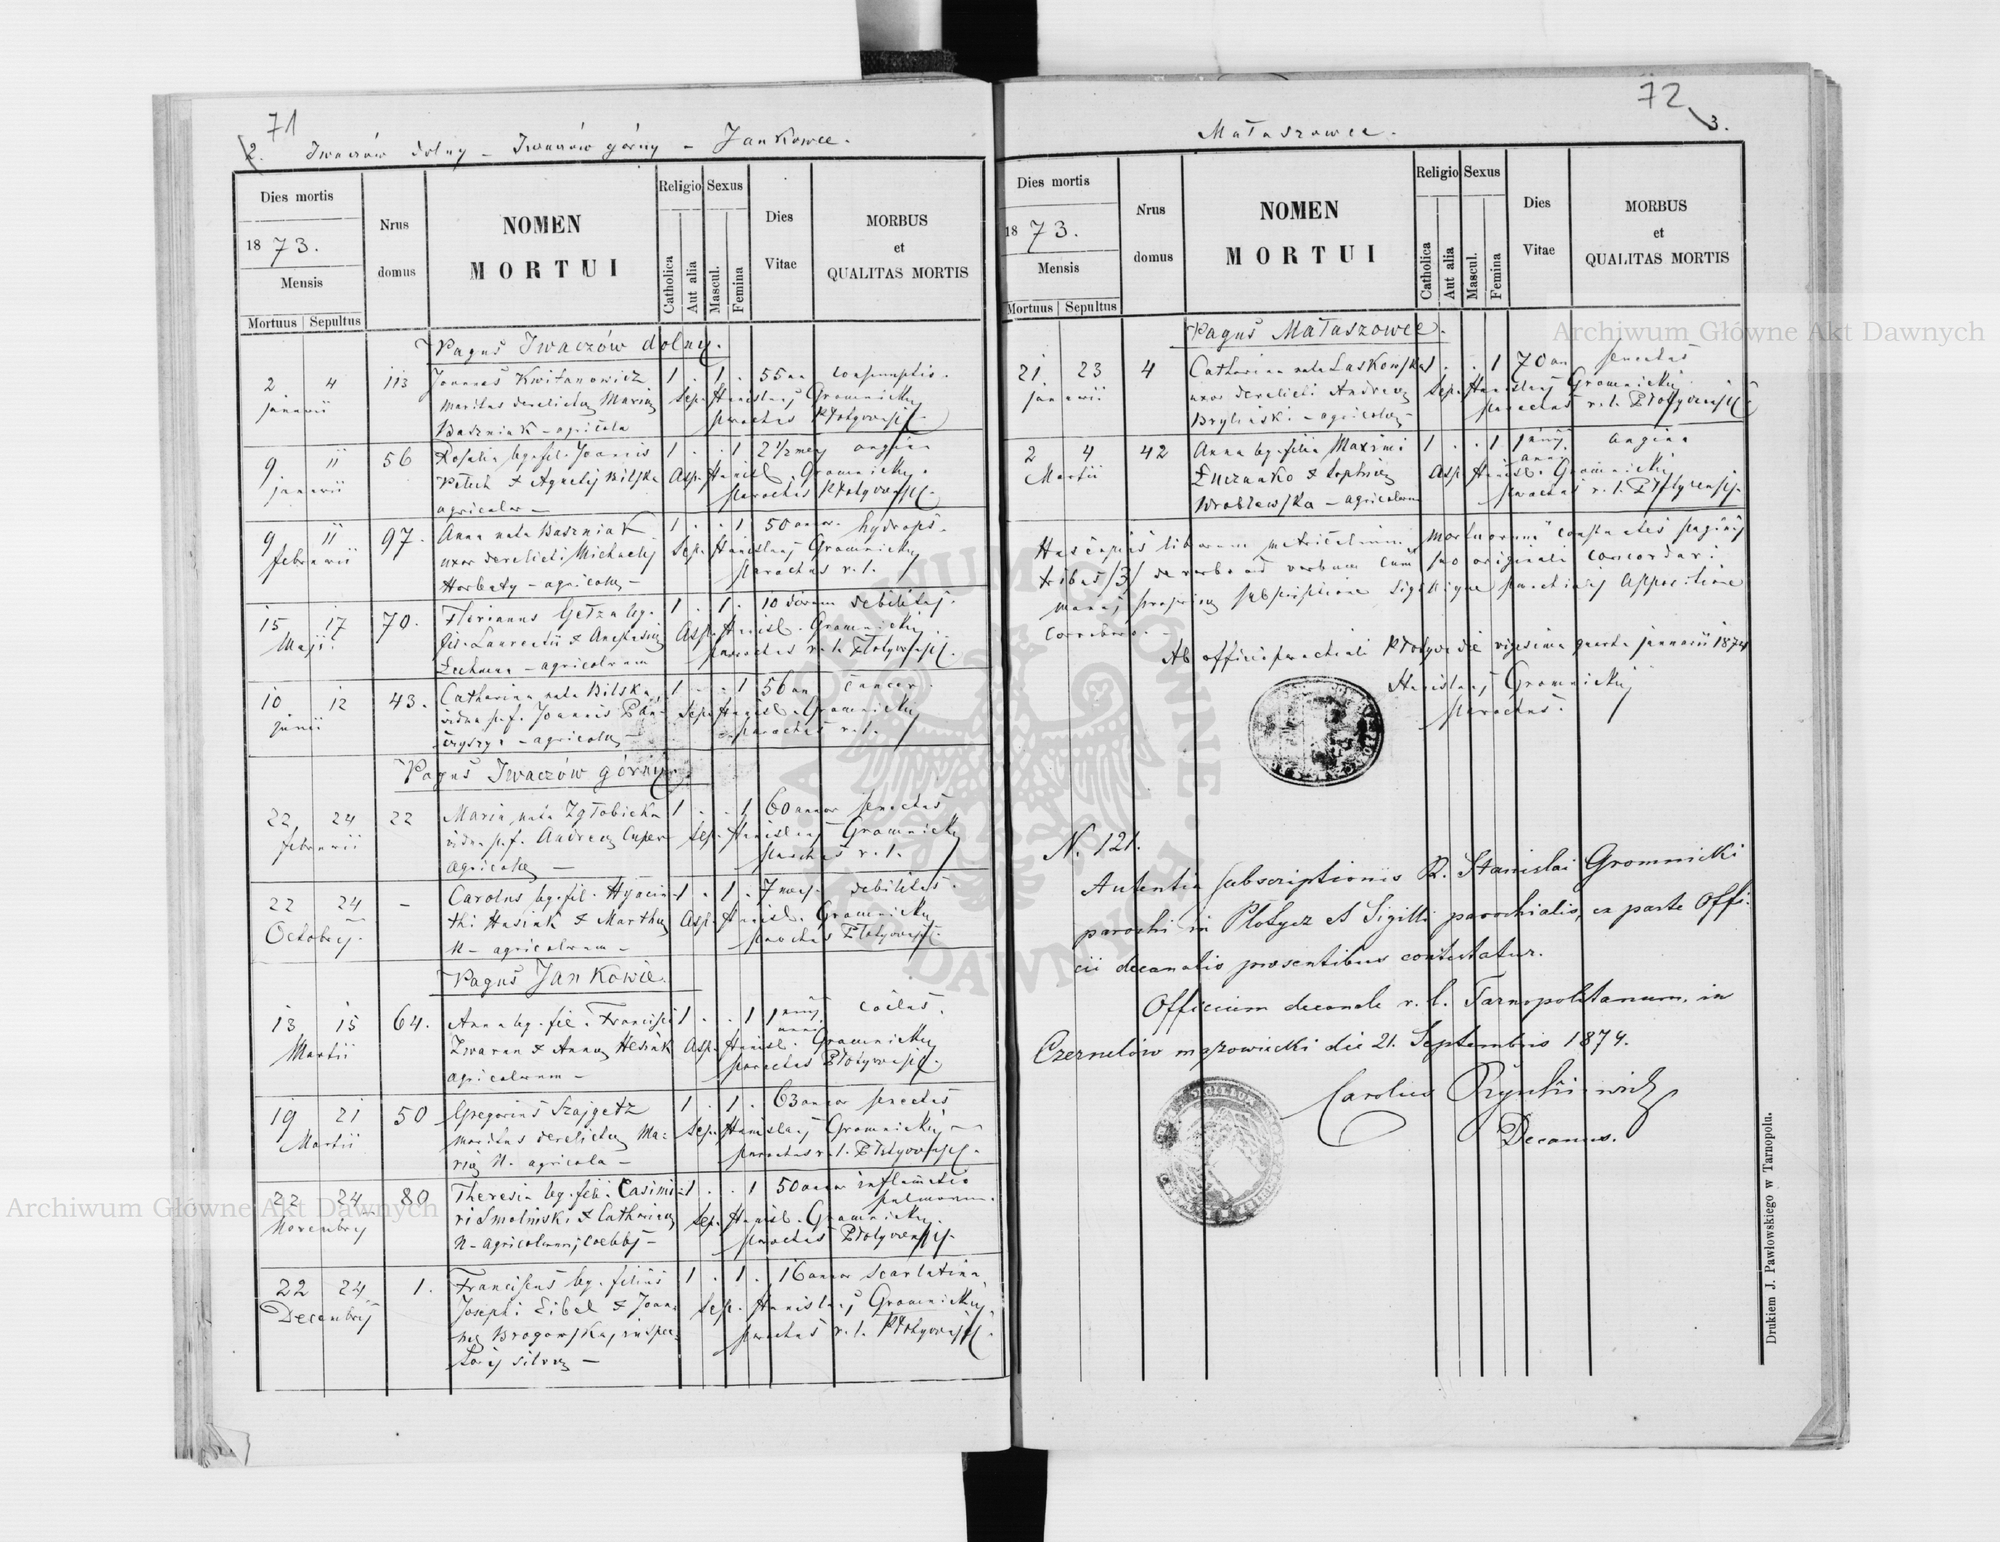 71
2. Iwaczów dolny – Iwaczów górny – Jankowce.
Dies mortis
1873.
Mensis
Mortuus Sepultus
Nrus domus
NOMEN MORTUI
Religio
Catholica
Aut alia
Sexus
Mascul.
Femina
Dies Vitae
MORBUS et QUALITAS MORTIS
Pagus Iwaczów dolny.
2 4 113 Joannes Kwitanowicz 1 . 1 . 55 an consumptio.
januarii maritus derelictus Mariae Sep. Stanislaus Gromnicki
Baszniak – agricola parochus Płotycensis
9 11 56 Rosalia leg. fil. Joannis 1 . . 1 2 1/2 mens angina
januarii Petech & Agnetis Bilska Asp. Stanisl. Gromnicki
agricolar – parochus Płotycensis
9 11 97. Anna nata Baszniak 1 . . 1 50 annor. hydrops.
februarii uxor derelicti Michaelis Sep. Stanislaus Gromnicki
Horbaty – agricolae – parochus r. l.
15 17 70. Florianus Getza leg. 1 . 1 . 10 dierum debilitas.
Maji. fil. Laurentii & Anastasiae Asp. Stanisl. Gromnicki
Lechman – agricolarum parochus r. l. Płotycensis.
10 12 43. Catharina nata Bilska, 1 . . 1 56 an cancer.
junii vidua p. f. Joannis Sep. Stanisl. Gromnicki
– agricolae – parochus r. l.
Pagus Iwaczów górny.
22 24 22 Maria nata Zgłobicka 1 . . 1 60 annor senectus
februarii vidua p. f. Andreae Cuper Sep. Stanislaus Gromnicki
agricolae – parochus r. l.
22 24 – Carolus leg. fil. Hyacin- 1 . 1 . 7 mens. debilitas.
Octobris. thi Husiak & Marthae Asp. Stanisl. Gromnicki
N – agricolarum – parochus Płotycensis.
Pagus Jankowce.
13 15 64. Anna leg. fil. Francisci 1 . . 1 1 anni
Martii Zwaran & Annae Hesiak Asp. Stanisl. Gromnicki
agricolarum – parochus Płotycensis.
19 21 50 Gregorius Szajgetz 1 . 1 . 63 annor senectus
Martii maritus derelictus Ma- Sep. Stanislaus Gromnicki
riae N. agricola – parochus r. l. Płotycensis.
22 24 80 Theresia leg. filia Casimi- 1 . . 1 50 annor inflamatio pulmonum.
Novembris ri Smolinski & Catharinae Sep. Stanisl. Gromnicki.
N – agricolarum, coelebs – parochus Płotycensis.
22 24. 1. Franciscus leg. filius 1 . 1 . 16 annor scarlatina,
Decembris Josephi Eibel & Joan- Sep. Stanislaus Gromnicki,
nae Brogowska, inspec- parochus r. l. Płotycensis.
toris silvae –
72
3.
Małaszowce.
Dies mortis
1873.
Mensis
Mortuus Sepultus
Nrus domus
NOMEN MORTUI
Religio
Catholica
Aut alia
Sexus
Mascul.
Femina
Dies Vitae
MORBUS et QUALITAS MORTIS
Pagus Małaszowce.
21. 23 4 Catharina nata Laskowska 1 . . 1 70 an senectus
januarii uxor derelicti Andreae Sep. Stanislaus Gromnicki
Bryliński – agricolae – parochus r. l. Płotycensis
2 4 42 Anna leg. filia Maximi 1 . . 1 1 anni angina
Martii Łuczanko & Sophiae Asp. Stanisl. Gromnicki
Wroblewska – agricolarum parochus r. l. Płotycensis.
Hasce copias librorum metricalium mortuorum constantes paginis
tribus /3/ de verbo ad verbum cum suo originali concordari
manus propriae subscriptione sigillique parochialis appositione
corroboro. –
Ab officio parochiali Płotycz die vigesima quarta januarii 1874
Stanislaus Gromnicki
parochus.
N. 121.
Autentia subscriptionis R. Stanislai Gromnicki
parochi in Płotycz et Sigilli parochialis, ex parte Offi-
cii decanalis presentibus contestatur.
Officium decanale r. l. Tarnopolitanum, in
Czernelów mazowiecki die 21. Septembris 1874.
Carolus
Decanus.
Drukiem J. Pawłowskiego w Tarnopolu.
Archiwum Główne Akt Dawnych
Archiwum Główne Akt Dawnych
ARCHIWUM GŁÓWNE AKT DAWNYCH